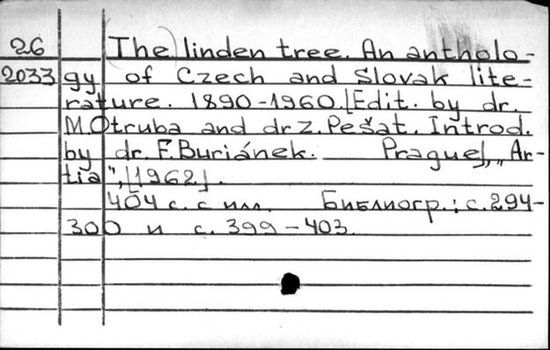 26 The linden tree. An antholo-
2033 gy of Czech and Slovak lite-
rature. 1890-1960.[Edit. by dr.
M.Otruba and dr Z. Pešat. Introd.
by dr. F. Buriánek. Prague], „Ar-
tia", [1962].
404 с. с илл. Библиогр.: с. 294-
300 и с. 399-403.